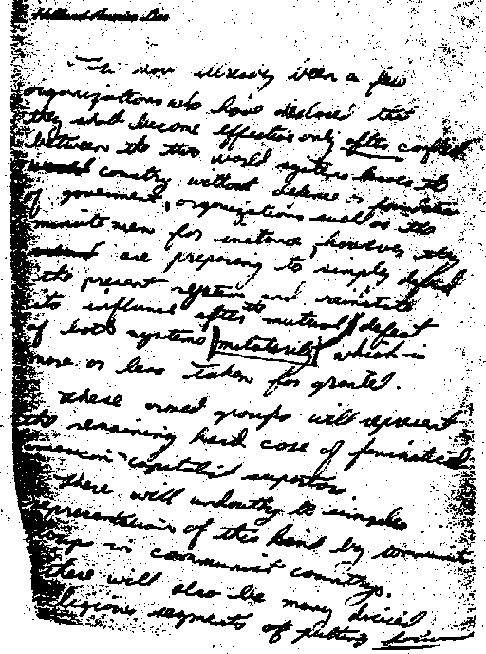 Holland America Line
now already been a few
organizations who have declared that
they shall become effective only after conflict
between the two world systems leaves the
country without defense or foundation
of goverment, organizations such as the
minute men for instance, however they
are preparing to simply defend
the present system and reinstate
its influence after the mutual defeat
of both systems militarily which is
more or less taken for granted.
These armed groups will represent
the remaining hard core of fanatical
american capitalist supportors.
There will undoubtly be similar
representations of this kind by communist
groups in communist countrys.
There will also be many decided
religious segments of putting